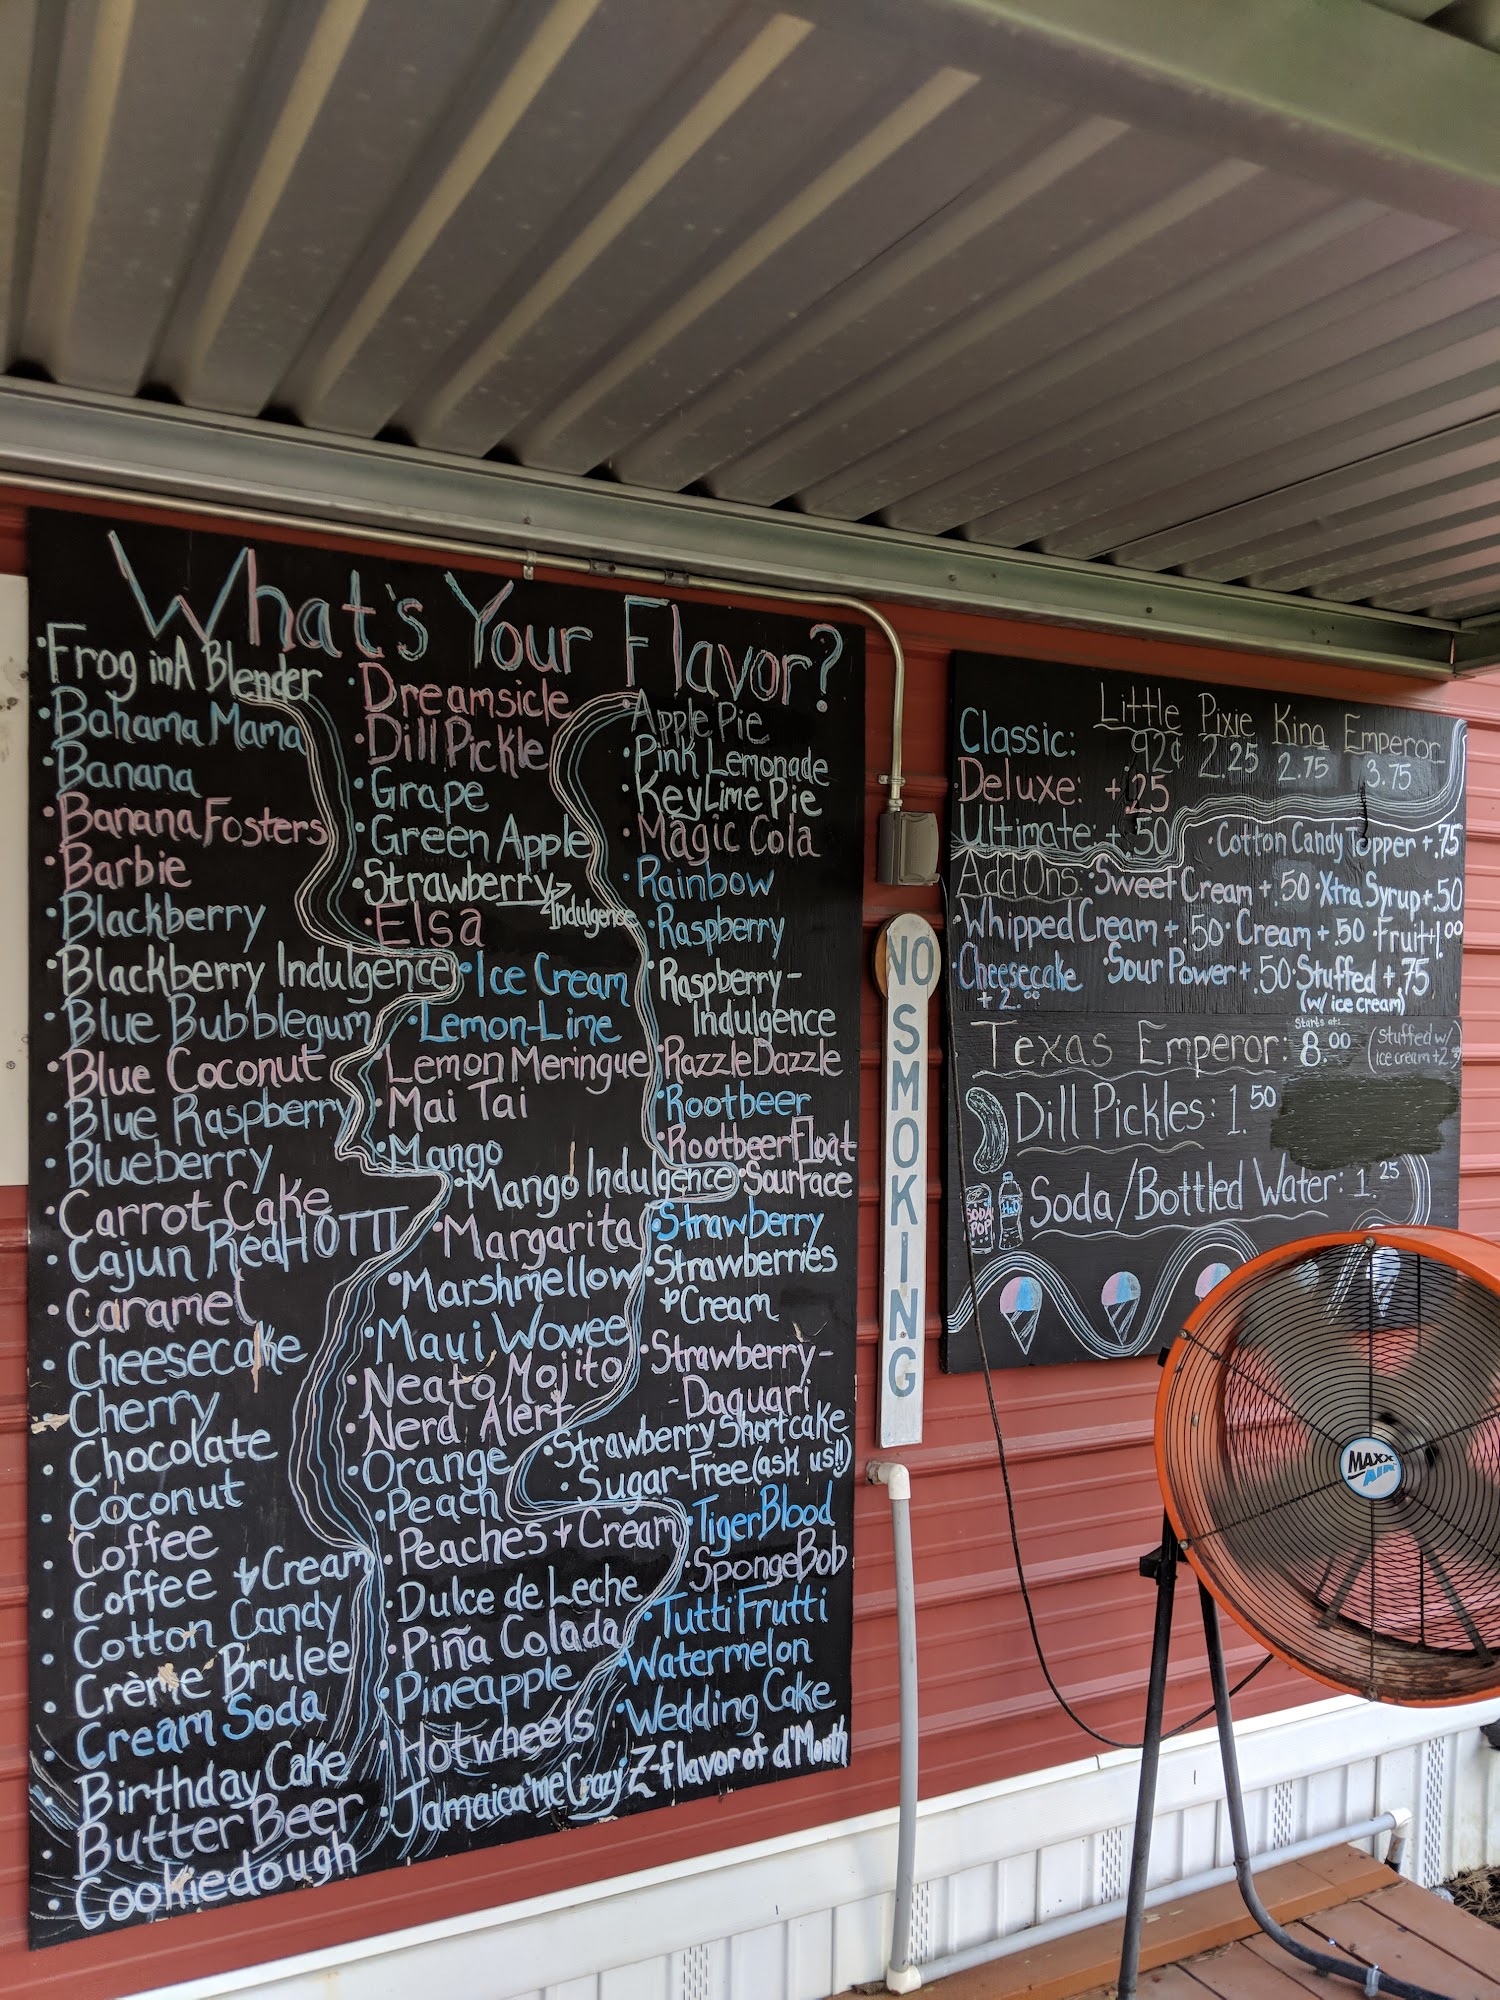 What's Your Flavor?
· Frog in A Blender
· Bahama Mama
· Banana
· Banana Fosters
· Barbie
· Blackberry
· Blackberry Indulgence
· Blue Bubblegum
· Blue Coconut
· Blue Raspberry
· Blueberry
· Carrot Cake
· Cajun RedHOTTT
· Caramel
· Cheesecake
· Cherry
· Chocolate
· Coconut
· Coffee
· Coffee + Cream
· Cotton Candy
· Crème Brulee
· Cream Soda
· Birthday Cake
· Butter Beer
· Cookiedough
· Dreamsicle
· Dill Pickle
· Grape
· Green Apple
· Strawberry
Indulgence
· Elsa
· Ice Cream
· Lemon-Lime
· Lemon Meringue
· Mai Tai
· Mango
· Mango Indulgence
· Margarita
· Marshmellow
· Maui Wowee
· Neato Mojito
· Nerd Alert
· Orange
· Peach
· Peaches + Cream
· Dulce de Leche
· Piña Colada
· Pineapple
· Hotwheels
· Jamaica'me'Crazy
· Apple Pie
· Pink Lemonade
· KeyLime Pie
· Magic Cola
· Rainbow
· Raspberry
· Raspberry-
Indulgence
· RazzleDazzle
· Rootbeer
· RootbeerFloat
· SourFace
· Strawberry
· Strawberries
+ Cream
· Strawberry-
-Daquari
· Strawberry Shortcake
· Sugar-Free (ask us!!)
· TigerBlood
· SpongeBob
· Tutti Frutti
· Watermelon
· Wedding Cake
Z-flavor of d'Month
NO
SMOKING
Little Pixie King Emperor
Classic: 92¢ 2.25 2.75 3.75
Deluxe: +.25
Ultimate: +.50 · Cotton Candy Topper +.75
Add Ons: · Sweet Cream +.50 · Xtra Syrup +.50
· Whipped Cream +.50 · Cream +.50 · Fruit 1.00
· Cheesecake +2.00 · Sour Power +.50 · Stuffed +.75
(w/ ice cream)
Texas Emperor: Starts at: 8.00 (stuffed w/
ice cream +2.
Dill Pickles: 1.50
Soda/Bottled Water: 1.25
SODA
POP
H2O
MAXX
AIR